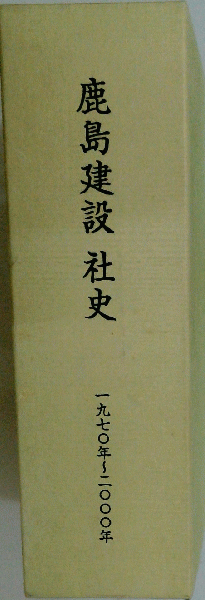 鹿島建設 社史
一九七〇年~二〇〇〇年